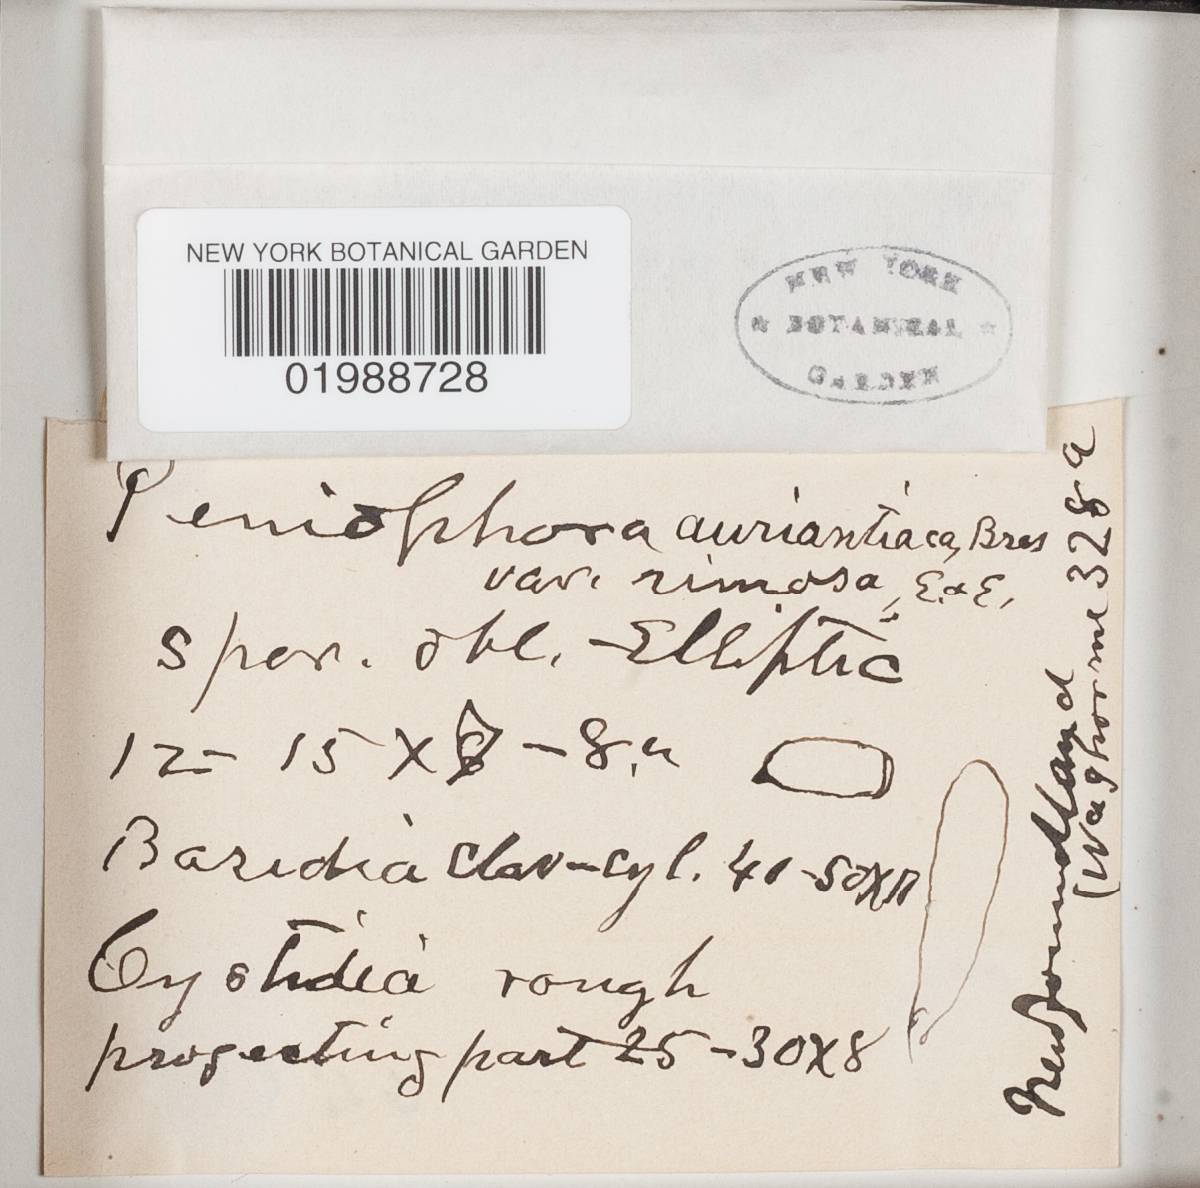 NEW YORK BOTANICAL GARDEN
01988728
NEW YORK
BOTANICAL
GARDEN
Peniophora auriantiaca, Bres
var. rimosa, E. & E.
Spor. obl. - Elliptic
12 - 15 X 6 - 8 µ
Basidia clav-cyl. 40-50X11
Cystidia rough
projecting part 25-30X8
Newfoundland
(Waghorne 328a